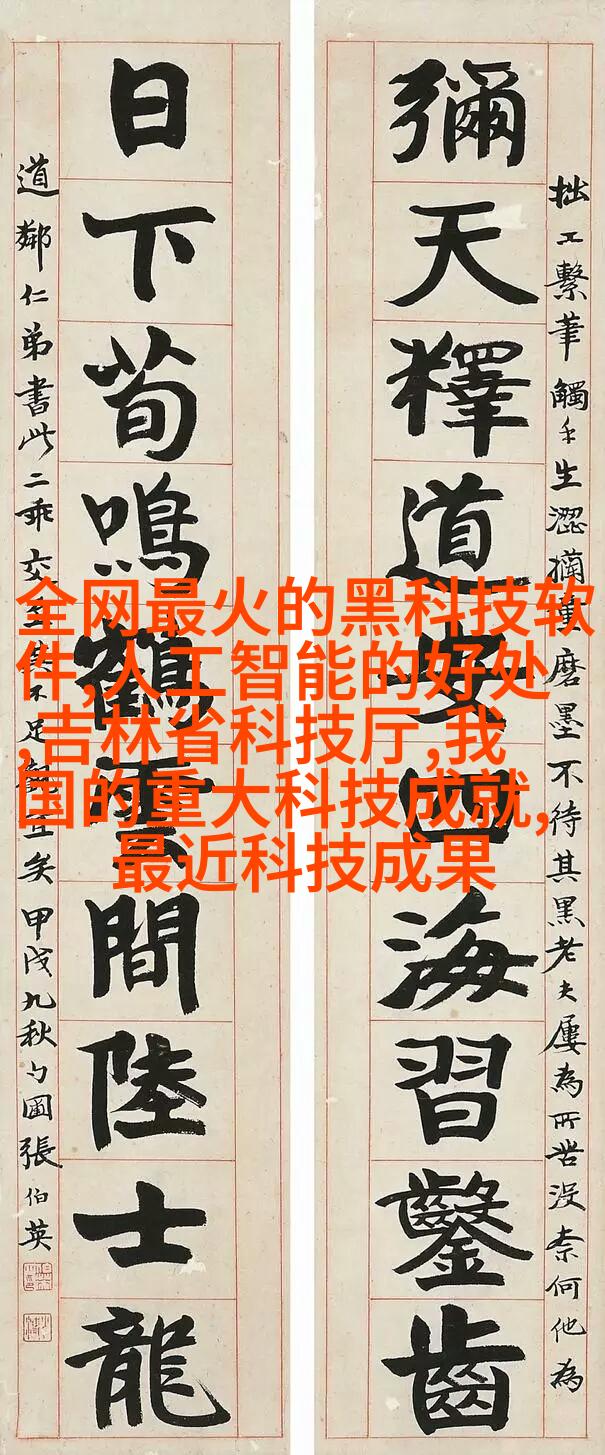 彌天釋道安四海習鑿齒
日下荀鳴鶴雲間陸士龍
拙工繫筆觸手生澀摛董磨墨不待其黑老夫屢為所苦沒柰何他為
道鄰仁弟書此二乖交至
足觀宜矣甲戌九秋勺圃張伯英
全网最火的黑科技软
件,人工智能的好处
,吉林省科技厅,我
国的重大科技成就,
最近科技成果